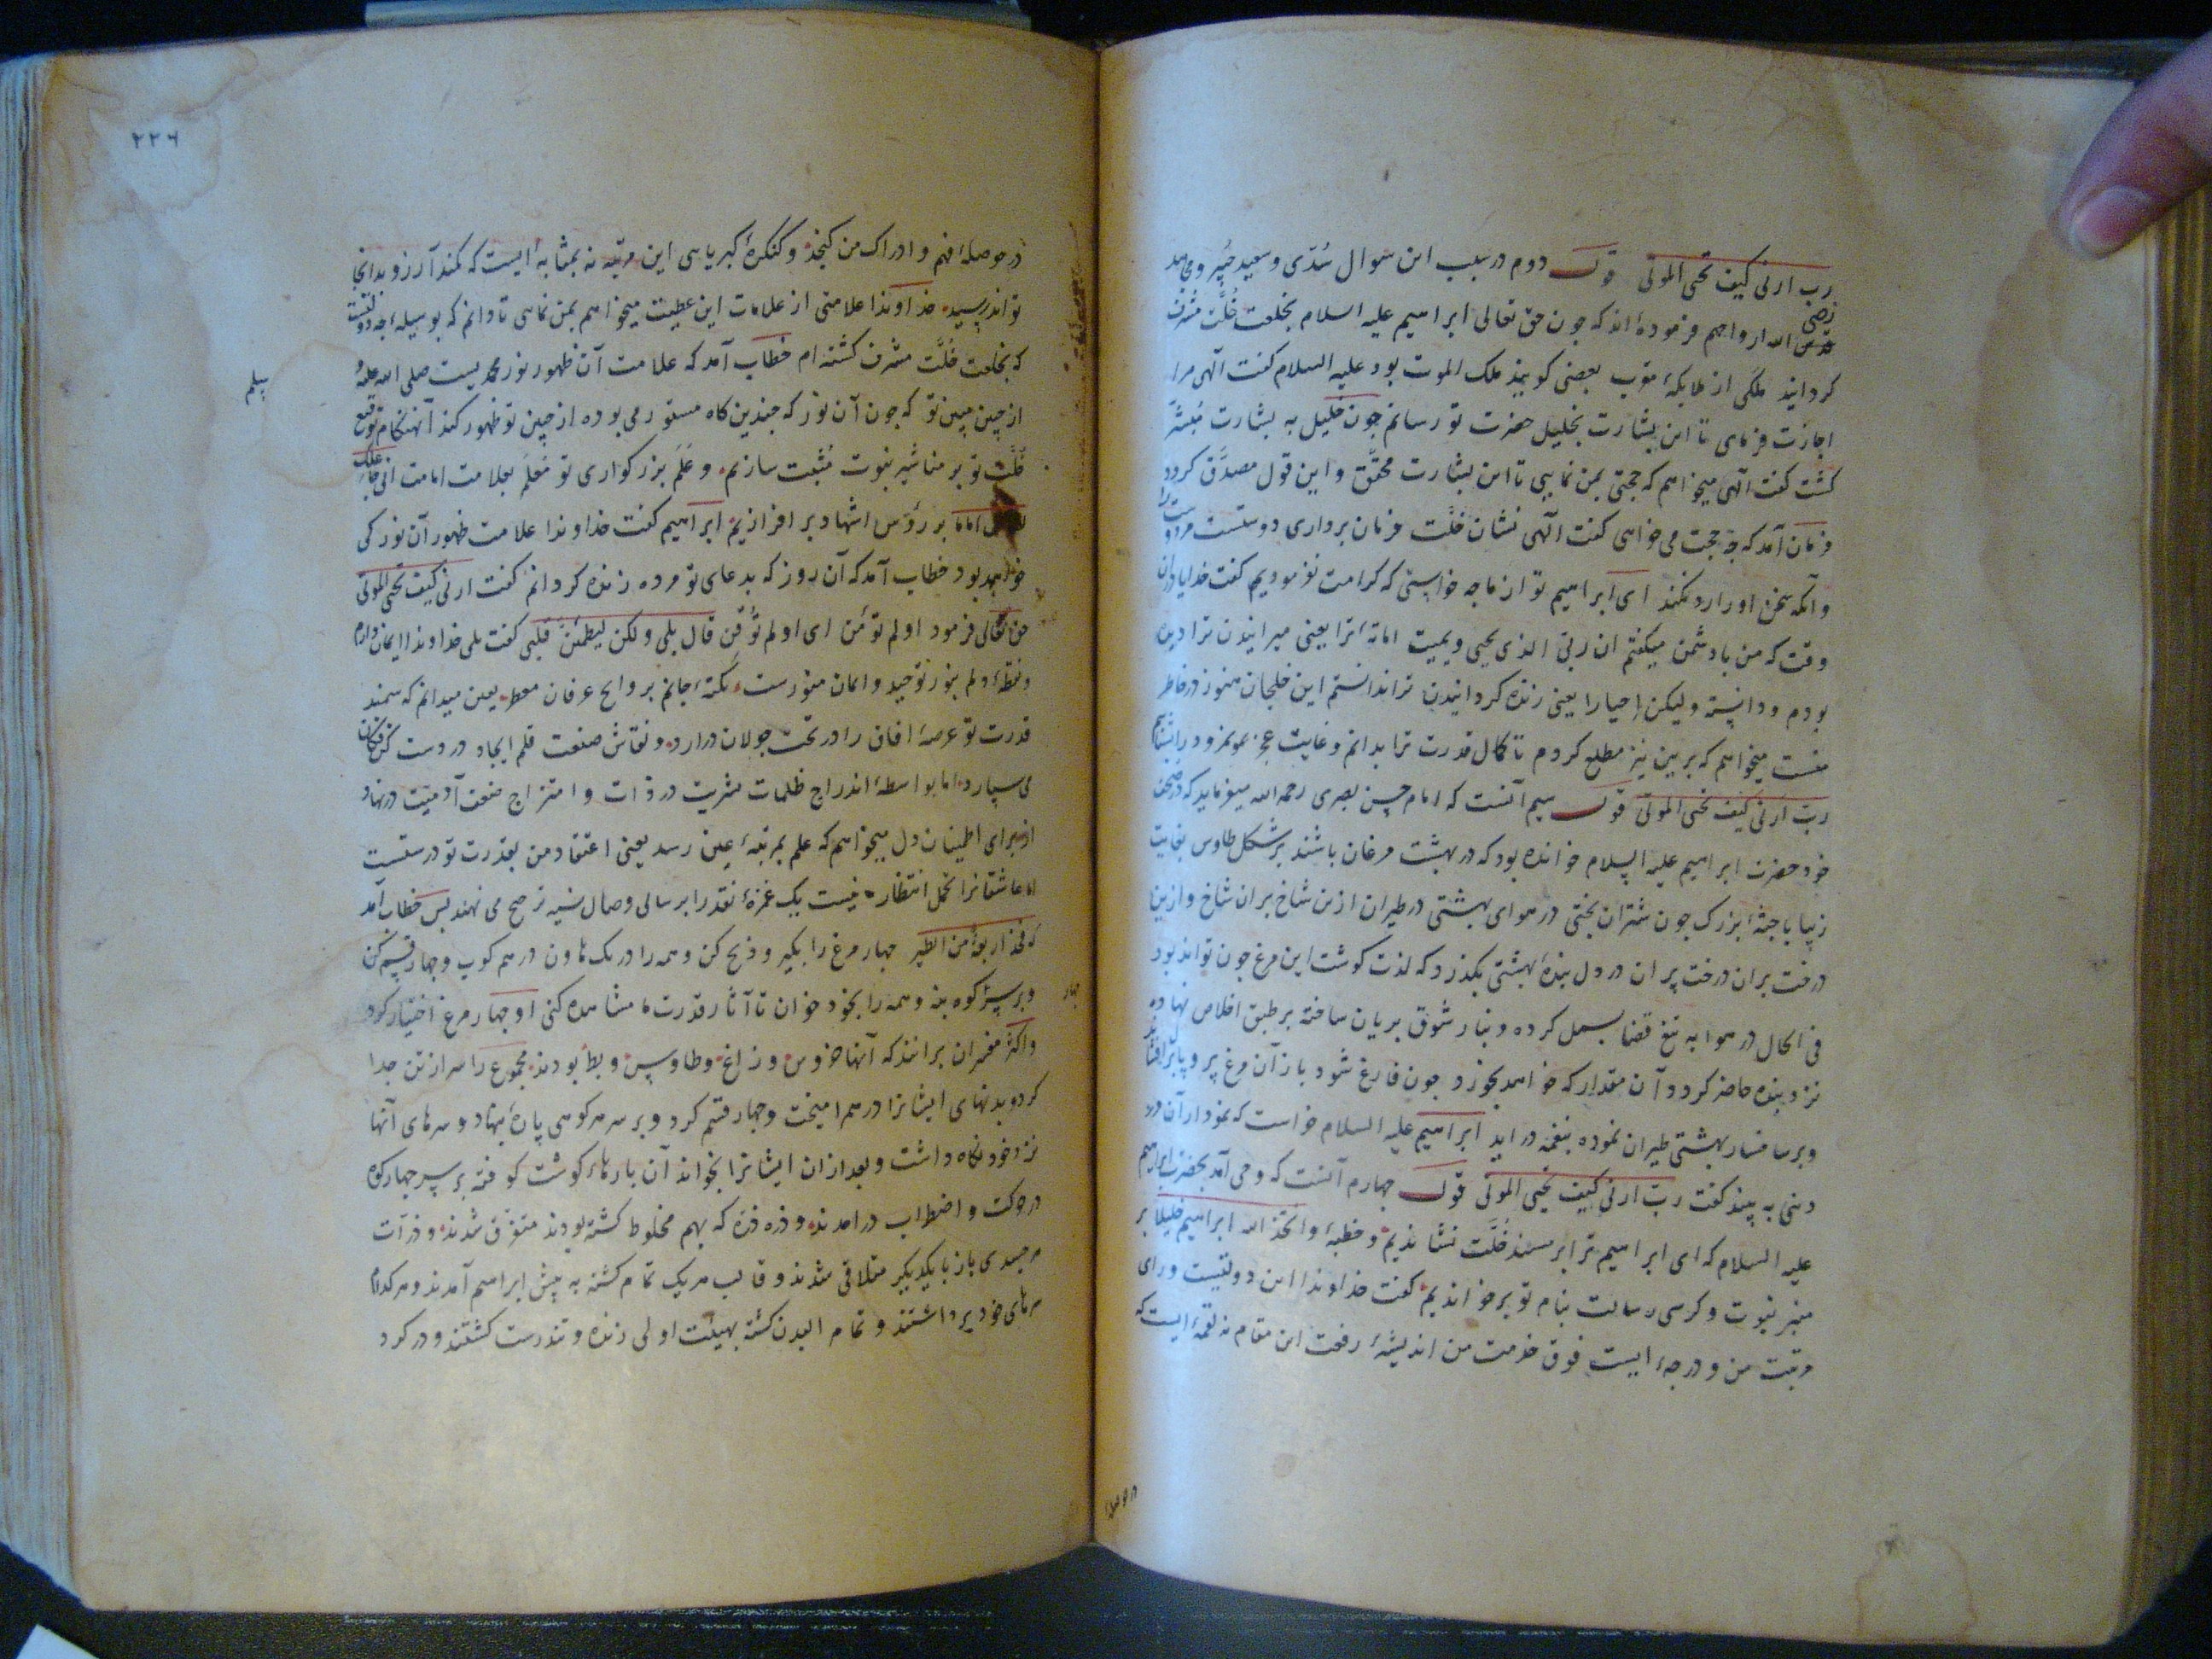 رب ارنی کیف تحیی الموتی قول دوم در سبب این سوال سُدّی و سعید جُبیر و مجاهد
رضی
قدس الله ارواحهم فرموده‌اند که چون حق تعالی ابراهیم علیه السلام بخلعت خُلَّت مشرف
کردانید ملکی از ملایکهٔ مقرب بعضی کویند ملک الموت بود علیه السلام کفت آلهی مرا
اجازت فرمای تا این بشارت بخلیل حضرت تو رسانم چون خلیل به بشارت مُبشَّر
کشت کفت آلهی میخواهم که حجتی بمن نمایی تا این بشارت محقَّق و این قول مصدَّق کردد
فرمان آمد که چه حجت می خواهی کفت آلهی نشان خلّت فرمان برداری دوستست مر دوست را
و آنکه سخن او را رد نکند ای ابراهیم تو از ما چه خواستی که کرامت نفرمودیم کفت خدایا در ان
وقت که من با دشمن میکفتم ان ربی الذی یحیی و یمیت اماتهٔ ترا یعنی میرانیدن ترا دیده
بودم و دانسته و لیکن احیا را یعنی زنده کردانیدن ترا ندانستم این خلجان هنوز در خاطر
منست میخواهم که برین نیز مطلع کردم تا کمال قدرت ترا بدانم و غایت عجز نمرود را بشناسم
ربّ ارنی کیف تحیی الموتی قول سیم آنست که امام حسن بصری رحمه الله میفرماید که در صحف
خود حضرت ابراهیم علیه السلام خوانده بود که در بهشت مرغان باشند بر شکل طاوس بغایت
زیبا با جثهٔ بزرک چون شتران بختی در هوای بهشتی در طیران ازین شاخ بران شاخ و ازین
درخت بران درخت پران در دل بندهٔ بهشتی بکذرد که لذت کوشت این مرغ چون تواند بود
فی الحال در هوا به تیغ قضا بسمل کرده و بنار شوق بریان ساخته بر طبق اخلاص نهاده
نزد بنده حاضر کردد آن مقدار که خواهد بخورد چون فارغ شود باز آن مرغ پر و بال برافشاند
و بر شاخسار بهشتی طیران نموده بنغمه در آید ابراهیم علیه السلام خواست که نمودار آن در
دنیی به بیند کفت ربّ ارنی کیف تحیی الموتی قول چهارم آنست که وحی آمد بحضرت ابراهیم
علیه السلام که ای ابراهیم ترا بر مسند خُلَّت نشاندیم و خطبهٔ و اتخذ الله ابراهیم خلیلا بر
منبر نبوت و کرسی رسالت بنام تو برخواندیم کفت خداوندا این دولتیست ورای
مرتبت من و درجهٔ ایست فوق خدمت من اندیشهٔ رفعت این مقام نه لقمهٔ ایست که
در حوصلهٔ
۲۲۶
در حوصلهٔ فهم و ادراک من کنجد و کنکرهٔ کبریای این مرتبه نه بمثابهٔ ایست که کمند آرزو بدانجا
تواند رسید خداوندا علامتی از علامات این عطیت میخواهم بمن نمای تا دانم که بوسیلهٔ چه دولتست
که بخلعت خُلّت مشرف کشته ام خطاب آمد که علامت آن ظهور نور محمدیست صلی الله علیه
وسلم
از جبین مبین تو که چون آن نور که چندین کاه مستور می بوده از جبین تو ظهور کند آنهنکام توقیع
خُلّت تو بر مناشیر نبوت مُثبت سازیم و عَلَم بزرکواری تو مُعلَم بعلامت امامت انی جاعلک
للناس اماما بر رؤس اشهاد بر افرازیم ابراهیم کفت خداوندا علامت ظهور آن نور کی
خواهد بود خطاب آمد که آن روز که بدعای تو مرده زنده کردانم کفت ارنی کیف تحیی الموتی
حق تعالی فرمود اولم تؤمن ای اولم تُوقن قال بلی و لکن لیطمئن قلبی کفت بلی خداوندا ایمان دارم
و نقطهٔ دلم بنور توحید و ایمان منورست نکتهٔ جانم بروایح عرفان معطر یقین میدانم که سمند
قدرت تو عرصهٔ افاق را در تحت جولان در ارد و نقاش صنعت قلم ایجاد در دست کن فکان
می سپارد اما بواسطهٔ اندراج ظلمات بشریت در ذات و امتزاج صنعت آدمیّت در نهاد
از برای اطمینان دل میخواهم که علم بمرتبهٔ عین رسد یعنی اعتقاد من بقدرت تو درستست
اما عاشقانرا تحمل انتظار نیست یک غمزهٔ نقد را بر سالی وصال نسیه ترجیح می نهند پس خطاب آمد
که فخذ اربعة من الطیر چهار مرغ را بکیر و ذبح کن و همه را در یک هاون در هم کوب و چهار قسم کن
و بر سر کوه بنه و همه را بخود خوان تا آثار قدرت ما مشاهده کنی او چهار مرغ اختیار کرد
چهار
و اکثر مفسران برانند که آنها خروس و زاغ و طاوس و بط بودند مجموع را سر از تن جدا
کرد و بدنهای ایشانرا در هم امیخت و چهار قسم کرد و بر سر هر کوهی پارهٔ بنهاد و سرهای آنها
نزد خود نکاه داشت و بعد ازان ایشانرا بخواند آن پارهاء کوشت کوفته بر سر چهار کوه
در حرکت و اضطراب در امدند و ذره ذره که بهم مخلوط کشته بودند متفرّق شدند و ذرّات
هر جسدی باز با یکدیکر متلاقی شدند و قالب هر یک تمام کشته به پیش ابراهیم آمدند و هر کدام
سرهای خود برداشتند و تمام البدن کشته بهیئت اولی زنده و تندرست کشتند و در کرد